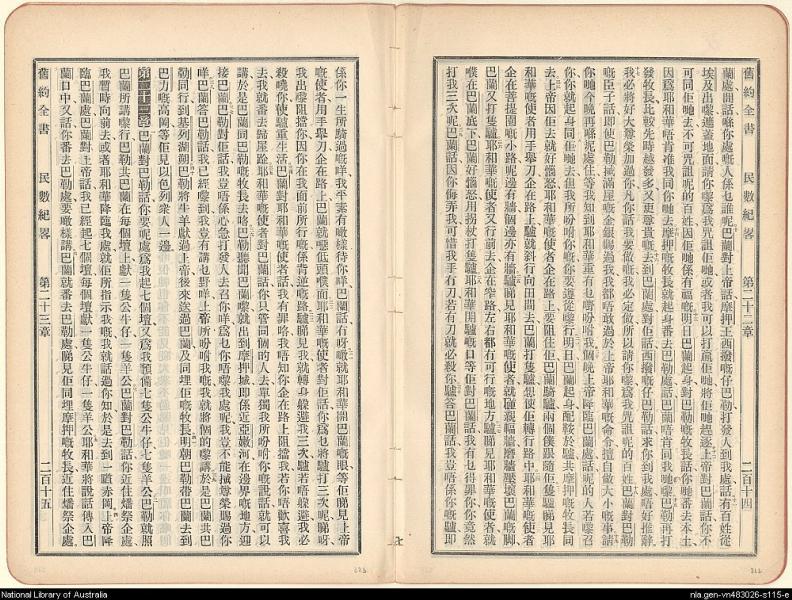 舊約全書　民數紀畧　第二十二章　二百十四
蘭處開話喺你處嘅人係乜誰呢巴蘭對上帝話摩押王西撥嘅仔巴勒打發人到我處話有百姓從
埃及出嚟遮蓋地面請你嚟爲我咒詛佢哋或者我可以打贏佢哋將佢哋趕逐上帝對巴蘭話你不
可同佢哋去不可咒詛呢的百姓因佢哋係有福嘅明日巴蘭起身對巴勒嘅牧長話你哋番去本土
因耶和華唔肯准我同你哋去摩押嘅牧長就起身番去巴勒處話巴蘭唔肯同我哋嚟巴勒再打
發牧長比較先時越發多又更尊貴嘅去到巴蘭處對佢話西撥嘅仔巴勒話求你到我處唔好推辭
我必將好大尊榮加過你凡你話我要做嘅我必定做所以請你嚟爲我咒詛呢的百姓巴蘭對巴勒
嘅臣子話即使巴勒將滿屋嘅金銀賜過我我都唔敢過於上帝耶和華嘅命令擅自做大小嘅事請
你哋今晚再喺呢處住等我知到耶和華重有乜嘢吩咐我個晚上帝降臨巴蘭處話呢的人若嚟召
你你就起身同佢哋去但我所吩咐你嘅你要遵從嚟行明日巴蘭起身配鞍於驢共摩押嘅牧長同
去上帝因佢去就好嬲怒耶和華嘅使者企在路上要阻住佢巴蘭騎驢兩個僕跟隨佢隻驢睇見耶
和華嘅使者用手舉刀企在路上驢就斜行向田間去巴蘭打隻驢想使佢轉行路中耶和華嘅使者
企在菩提園嘅小路呢邊有牆個邊亦有牆驢睇見耶和華嘅使者就䃺親幅牆磨驢壓壞巴蘭嘅脚
巴蘭又打隻驢耶和華嘅使者又行前去企在窄路左右都冇可行嘅地方驢睇見耶和華嘅使者就
喺在巴蘭底下巴蘭好嬲怒用拐杖打隻驢耶和華開驢嘅口等佢對巴蘭話我有乜得罪你你竟然
打我三次呢巴蘭話因你侮弄我可惜我手冇刀若有刀我就必殺你驢答巴蘭話我豈唔係你嘅驢即
係你一生所騎過嘅咩我平素有噉樣待你咩巴蘭話冇呀噉就耶和華開巴蘭嘅眼等佢睇見上帝
嘅使者用手舉刀企在路上巴蘭就磕低頭噗面耶和華嘅使者對佢話你爲乜將驢打三次呢睇呀
我出嚟阻擋你因你在我面前所行嘅係背逆嘅路驢睇見我就轉身躱避我三次驢若唔躱避我必
殺曉你使驢重生活巴蘭對耶和華嘅使者話我有罪咯我唔知你企在路上阻擋我若你唔歡喜我
去我就番去歸屋跲耶和華嘅使者對巴蘭話你只管同個的人去單獨我所吩咐你嘅說話就可以
講於是巴蘭同巴勒嘅牧長去咯巴勒聽聞巴蘭嚟就出到摩押城即係近亞嫩河在邊界嘅地方迎
接巴蘭巴勒對佢話我豈唔係心急打發人去召你咩爲乜你唔嚟我處呢我豈不能摵尊榮賜過你
咩巴蘭答巴勒話我已經嚟到我豈有講乜野咩上帝所吩咐我嘅我就將個的嚟講於是巴蘭共巴
勒同行到基列湖朔巴勒將牛羊獻過上帝後來送過巴蘭及同埋佢嘅牧長明朝巴勒帶巴蘭去到
巴力嘅高岡等佢見以色列衆人一邊
第二十三章 巴蘭對巴勒話你要呢處爲我起七個壇又爲我預備七隻公牛仔七隻羊公巴勒就照
巴蘭所講嚟行巴勒共巴蘭在每個壇上獻一隻公牛仔一隻羊公巴蘭對巴勒話你企近住燔祭
我暫時向前去或者耶和華降臨我處就佢所指示我嘅我就話過你知於是去到一䟕赤岡上帝降
臨巴蘭處巴蘭對上帝話我已經起七個壇每個壇獻一隻公牛仔一隻羊公耶和華將說話傳入巴
蘭口中又話你番去巴勒處要噉樣講巴蘭就番去巴勒處睇見佢同埋摩押嘅牧長近住燔祭企處
舊約全書　民數紀畧　第二十三章　二百十五
National Library of Australia
nla.gen-vn483026-s115-e